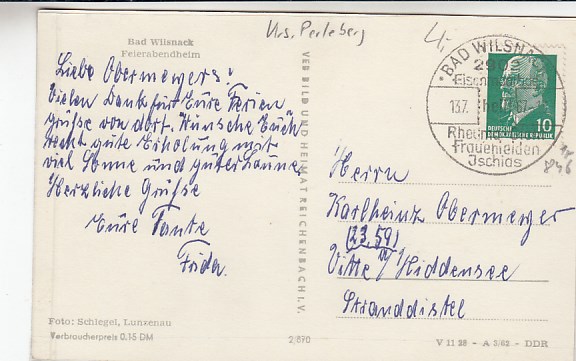 Krs. Perleberg
Bad Wilsnack
Feierabendheim
Liebe Obermeyers!
Vielen Dank für Eure Ferien
grüße von dort. Wünsche Euch
recht gute Erholung mit
viel Sonne und guter Laune
Herzliche Grüße
Eure Tante
Frida.
Foto: Schlegel, Lunzenau
Verbraucherpreis 0,15 DM
VEB BILD UND HEIMAT REICHENBACH I. V.
2/870
BAD WILSNACK
2902
13.7.
Rheuma
Frauenleiden
Ischias
DEUTSCHE
DEMOKRATISCHE REPUBLIK
10
Herrn
Karlheinz Obermeyer
(23 59)
Vitte a/ Hiddensee
Stranddistel
V 11 28 - A 3/62 - DDR